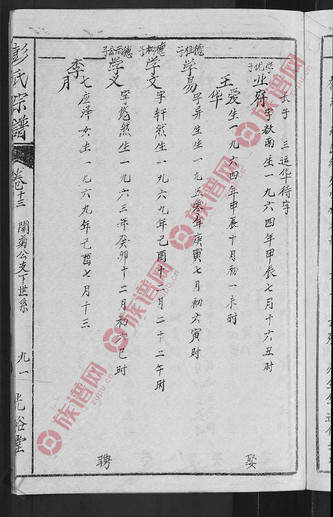 长子 三运华 待字
业府 字敖南生一九六四年甲辰七月十六丑时 娶
王爱华 生一九六四年甲辰十月初一未时
德仕子
学易 字昇生生一九五零年庚寅七月初六寅时
德松子
学文 字轩然生一九六九年己酉十二月二十二午时
德雨公子
学义 字悠然生一九六三年癸卯十二月初六巳时 聘
李月 七应泽女生一九六九年己酉七月十三
彭氏宗谱 卷十三 開菊公支下世系 九一 光裕堂
族谱网